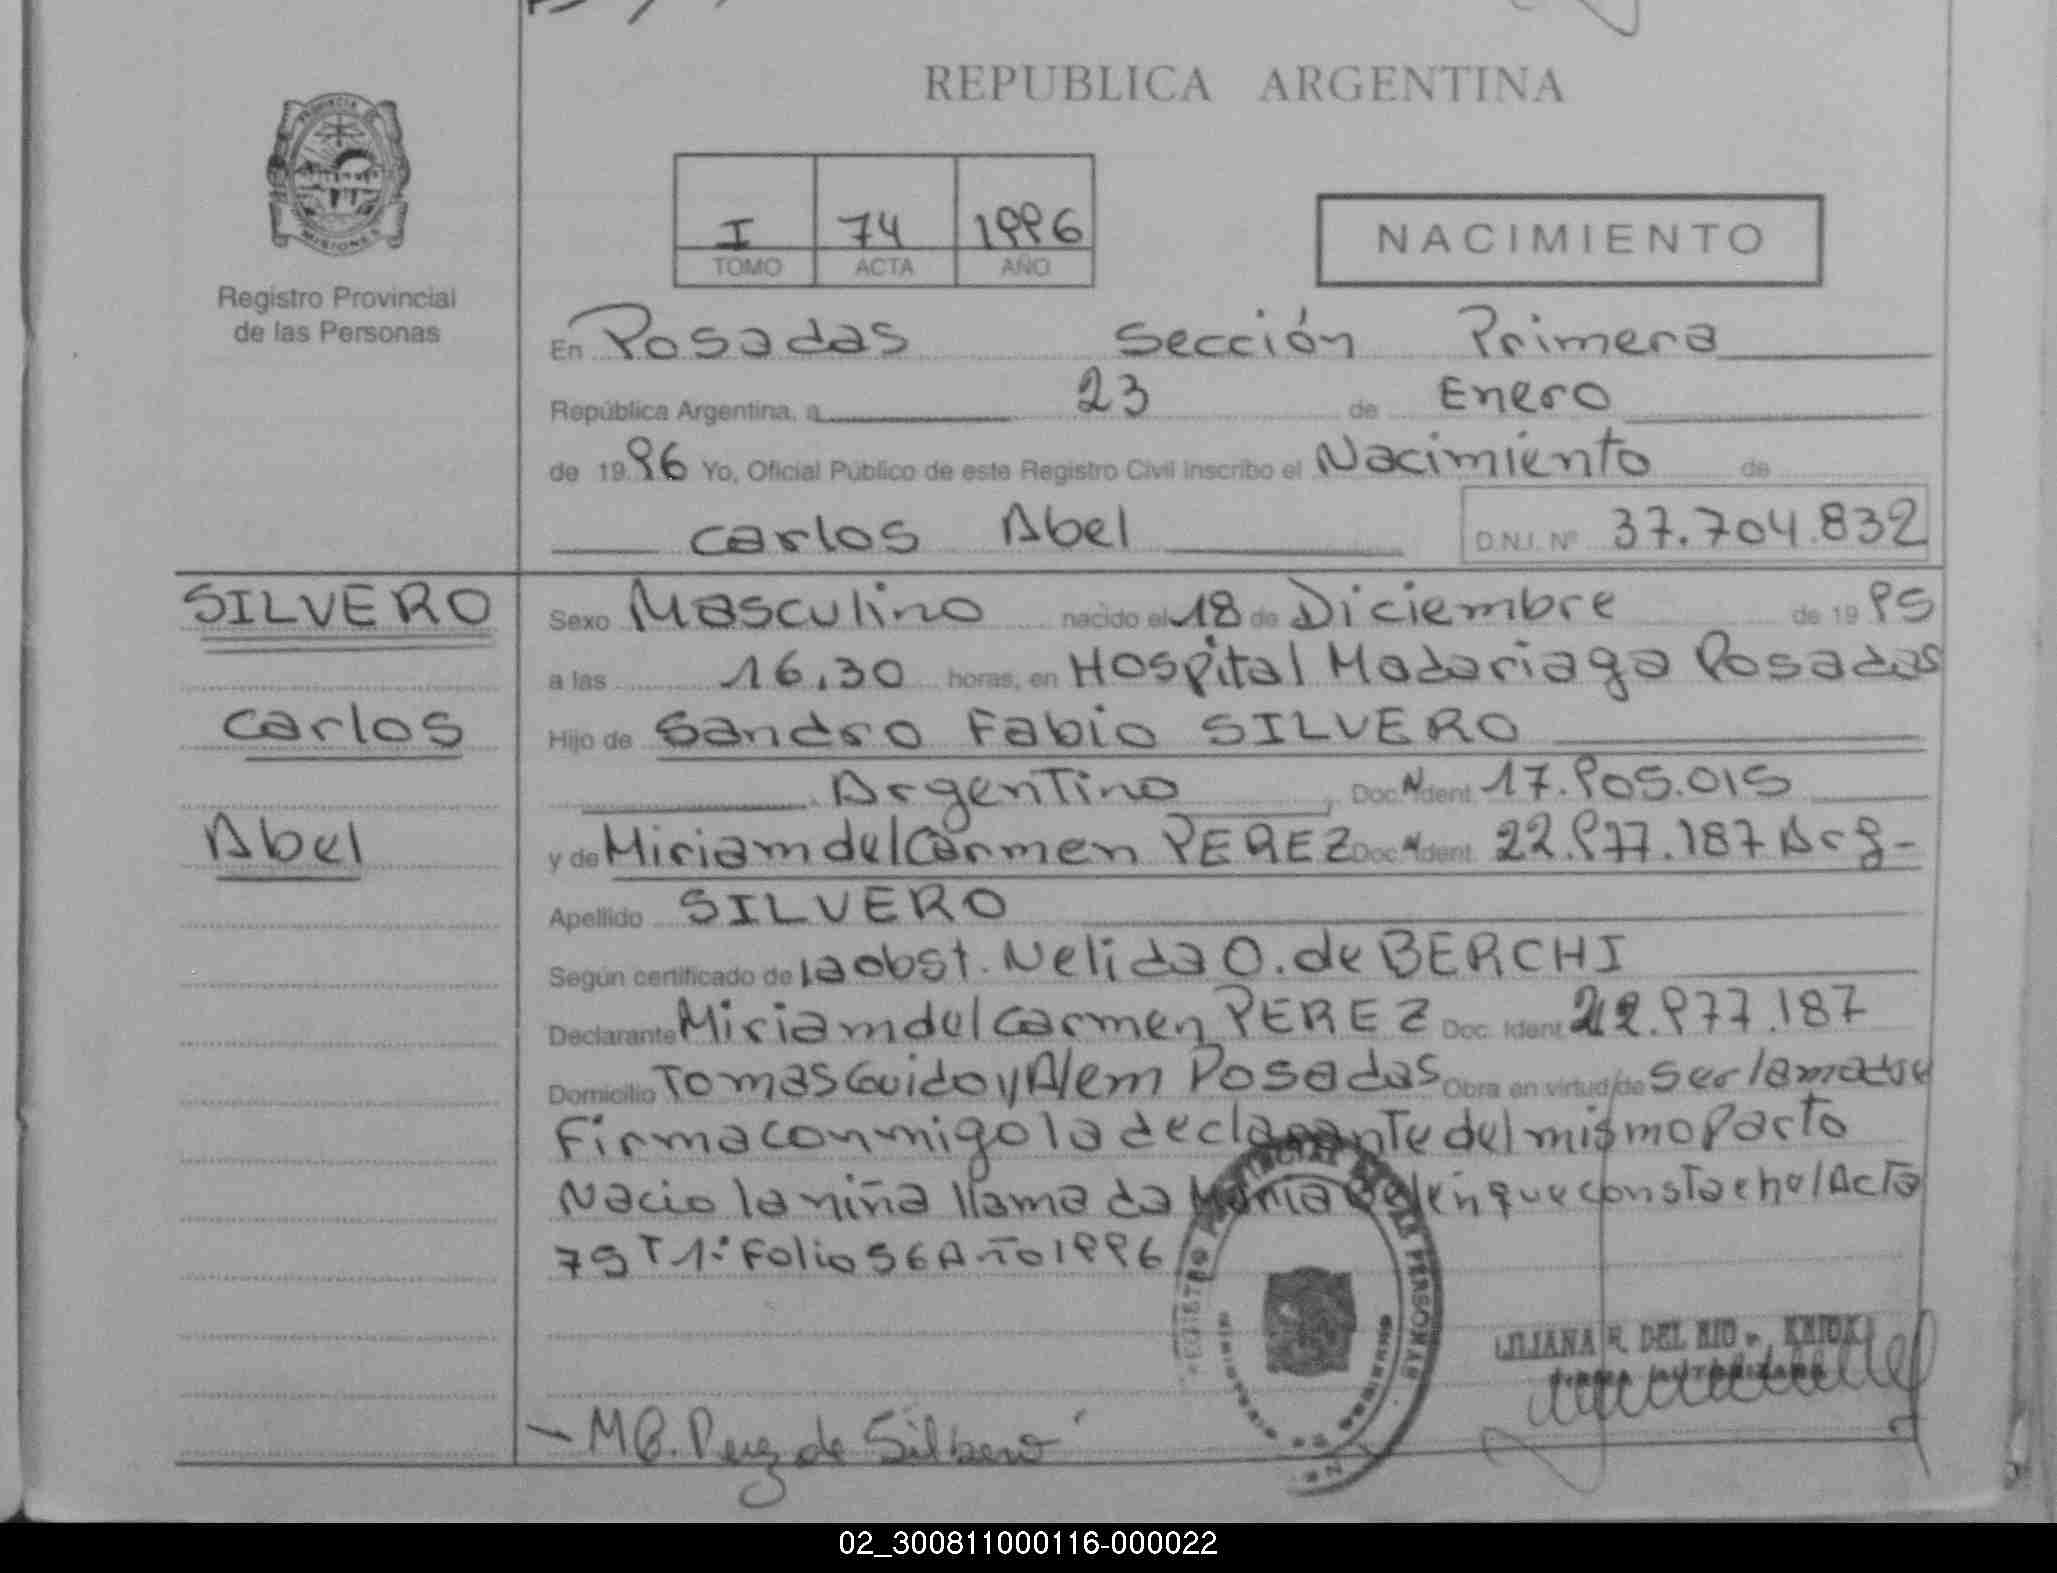 REPUBLICA ARGENTINA
PROVINCIA DE
MISIONES
Registro Provincial
de las Personas
I 74 1996
TOMO ACTA AÑO
NACIMIENTO
En Posadas Sección Primera
República Argentina, a 23 de Enero
de 1996 Yo, Oficial Público de este Registro Civil inscribo el Nacimiento de
Carlos Abel D.N.I. Nº 37.704.832
SILVERO
Carlos
Abel
Sexo Masculino nacido el 18 de Diciembre de 1995
a las 16,30 horas, en Hospital Madariaga Posadas
Hijo de Sandro Fabio SILVERO
Argentino, Doc. Ident. 17.905.015
y de Miriam del Carmen PEREZ Doc. Ident. 22.977.187 Arg-
Apellido SILVERO
Según certificado de la obst. Nelida O. de BERCHI
Declarante Miriam del Carmen PEREZ Doc. Ident. 22.977.187
Domicilio Tomas Guido y Alem Posadas Obra en virtud de ser la madre
Firma conmigo la declarante del mismo Parto
Nacio la niña llamada Maria Belén que consta en el Acta
75 T 1º Folio 56 Año 1996
LILIANA R. DEL RIO de KNIOK
FIRMA AUTORIZADA
- M C. Perez de Silvero
02_300811000116-000022